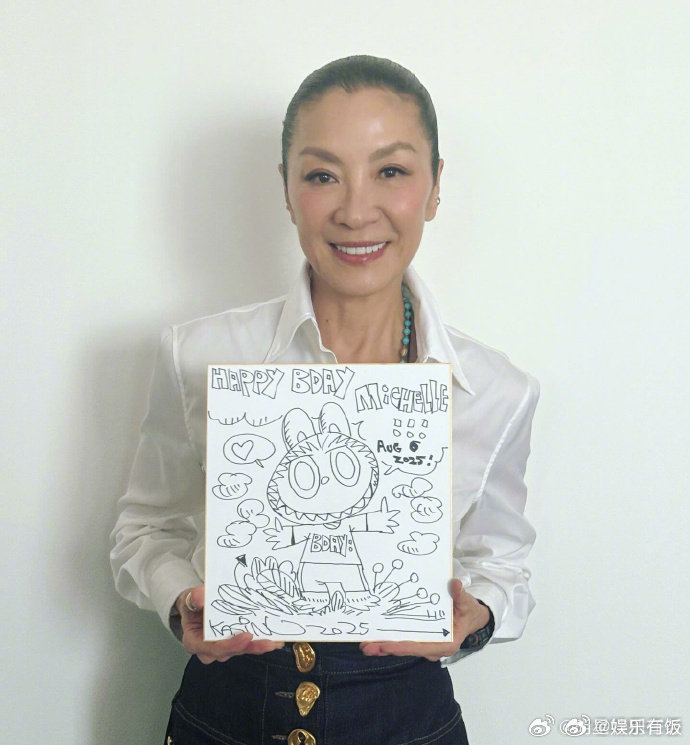 HAPPY BDAY
MiCHELLE
!!!
AUG 6
2025!
BDAY!
KASiNG 2025
娱乐有饭